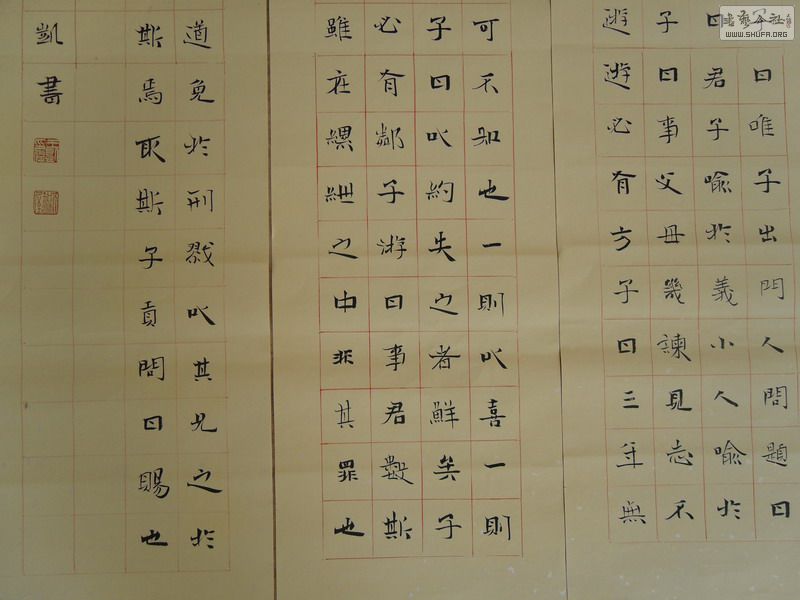 曰唯子出門人問題曰
曰君子喻於義小人喻於
子曰事父母幾諫見志不
遊遊必有方子曰三年無
可不知也一則以喜一則
子曰以約失之者鮮矣子
必有鄰子游曰事君數斯
雖在縲紲之中非其罪也
道免於刑戮以其兄之於
斯焉取斯子貢問曰賜也
凱書
WWW.SHUFA.ORG